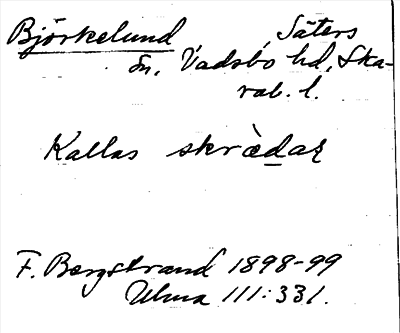 Björkelund, Säters
sn, Vadsbo hd, Ska-
rab. l.
Kallas skrὲdaʀ
F. Bergstrand 1898-99
Ulma 111:331.